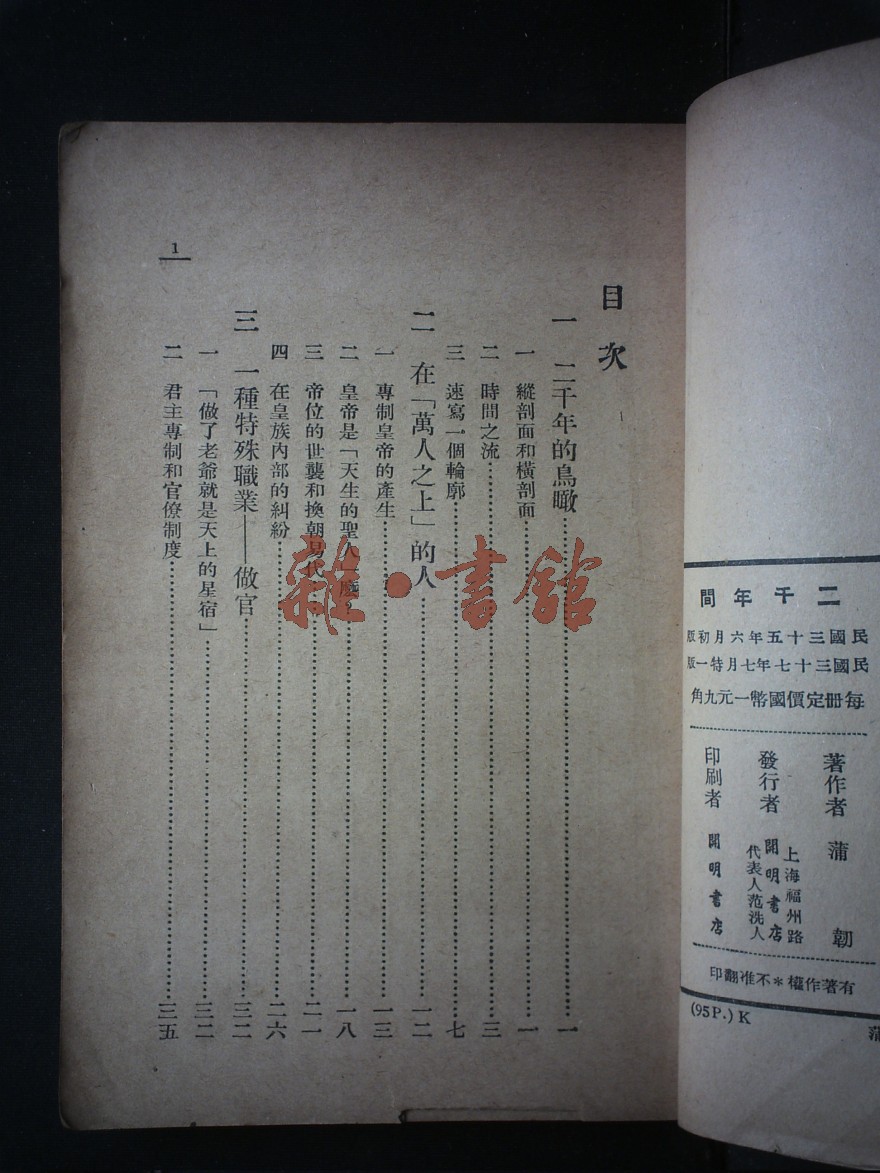 二千年間
民國三十五年六月初版
民國三十七年七月特一版
每册定價國幣一元九角
著作者 蒲韌
發行者 上海福州路
開明書店
代表人范洗人
印刷者 開明書店
有著作權*不准翻印
(95P.) K
蒲
目次
一 二千年的鳥瞰……一
一 縱剖面和橫剖面……一
二 時間之流……三
三 速寫一個輪廓……七
二 在「萬人之上」的人……一二
一 專制皇帝的產生……一三
二 皇帝是「天生的聖人」麽……一八
三 帝位的世襲和換朝易代……二一
四 在皇族內部的糾紛……二六
三 一種特殊職業——做官……三二
一 「做了老爺就是天上的星宿」……三二
二 君主專制和官僚制度……三五
1
雜·書館